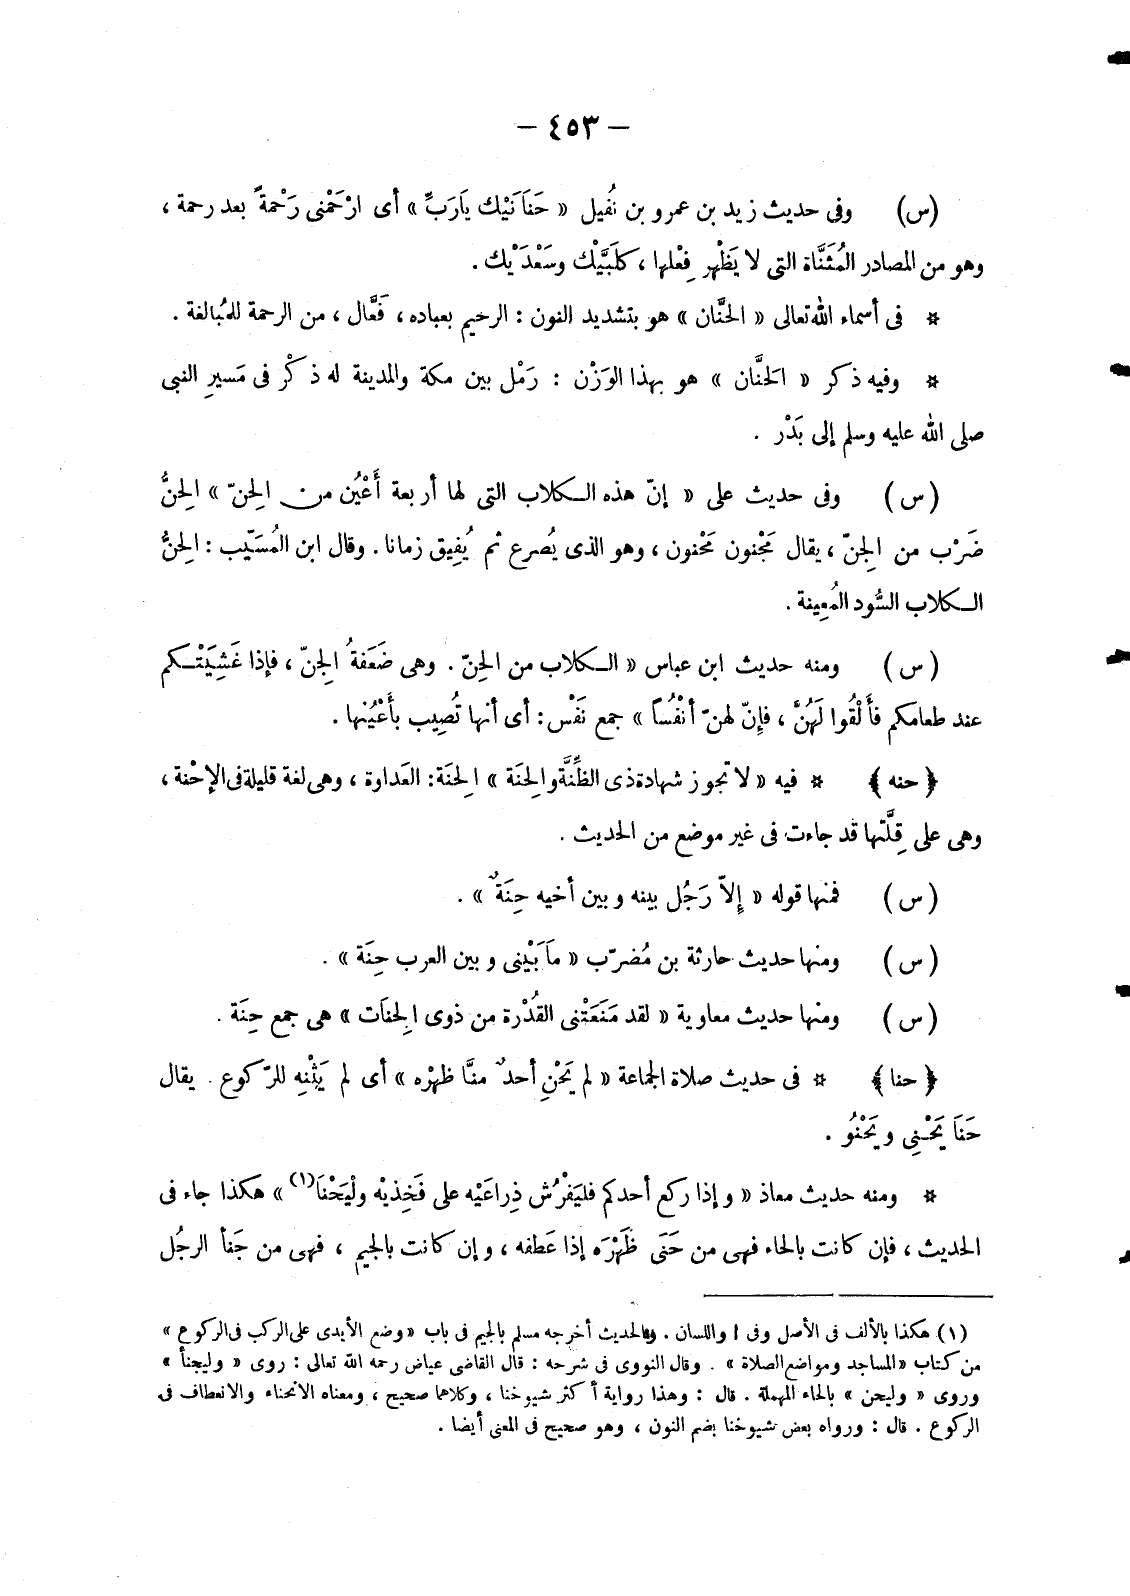 — ٤٥٣ —
(س) وفى حديث زيد بن عمرو بن نُفَيل « حَنَانَيْك يَارَبِّ » أى ارْحَمْنى رَحْمةً بعد رحمة ،
وهو من المصادر المُثَنَّاة التى لا يَظْهر فِعْلها ، كلَبَّيْك وسَعْدَيْك .
* فى أسماء الله تعالى « الحنَّان » هو بتشديد النون : الرحيم بعباده ، فَعَّال ، من الرحمة للمُبالغة .
* وفيه ذكر « الحَنَّان » هو بهذا الوَزْن : رَمْل بين مكة والمدينة له ذكْر فى مَسيرِ النبى
صلى الله عليه وسلم إلى بَدْر .
(س) وفى حديث على « إنّ هذه الكلاب التى لها أربعة أَعْيُن من الِحنّ » الِحنُّ
ضَرْب من الِجنّ ، يقال مَجْنون مَحْنون ، وهو الذى يُصرع ثم يُفِيق زمانا . وقال ابن المُسَيّب : الِحنُّ
الكلاب السُّود المُعِينة .
(س) ومنه حديث ابن عباس « الكلاب من الِحنّ . وهى ضَعَفةُ الِجنّ ، فإذا غَشِيَتْكم
عند طعامكم فأَلْقُوا لَهُنَّ ، فإِنّ لهنّ أنْفُسًا » جمع نَفْس : أى أنها تُصِيب بأَعْيُنها .
﴿ حنه ﴾ * فيه « لا تجوز شهادة ذى الظِّنَّة والِحنَة » الِحنَة : العَداوة ، وهى لغة قليلة فى الإحْنة ،
وهى على قِلَّتها قد جاءت فى غير موضع من الحديث .
(س) فمنها قوله « إلاّ رَجُل بينه وبين أخيه حِنَةٌ » .
(س) ومنها حديث حارثة بن مُضرّب « مابَيْنى وبين العرب حِنَة » .
(س) ومنها حديث معاوية « لقد مَنَعَتْنى القُدْرة من ذوى الِحنَات » هى جمع حِنَة .
﴿ حنا ﴾ * فى حديث صلاة الجماعة « لم يَحْنِ أحدٌ منَّا ظهْره » أى لم يَثْنِه للرّكوع . يقال
حَنَا يَحْنِى ويَحْنُو .
* ومنه حديث معاذ « وإذا ركع أحدكم فليَفْرُش ذِراعَيْه على فَخِذيْه ولْيَحْنَا(١) » هكذا جاء فى
الحديث ، فإن كانت بالحاء فهى من حَنَى ظَهْرَه إذا عَطفه ، وإن كانت بالجيم ، فهى من جَنأ الرجُل
(١) هكذا بالألف فى الأصل وفى ا واللسان . والحديث أخرجه مسلم بالجيم فى باب « وضع الأيدى على الركب فى الركوع »
من كتاب « المساجد ومواضع الصلاة » . وقال النووى فى شرحه : قال القاضى عياض رحمه الله تعالى : روى « وليجنأ »
وروى « وليحن » بالحاء المهملة . قال : وهذا رواية أكثر شيوخنا ، وكلاهما صحيح ، ومعناه الانحناء والانعطاف فى
الركوع . قال : ورواه بعض شيوخنا بضم النون ، وهو صحيح فى المعنى أيضا .